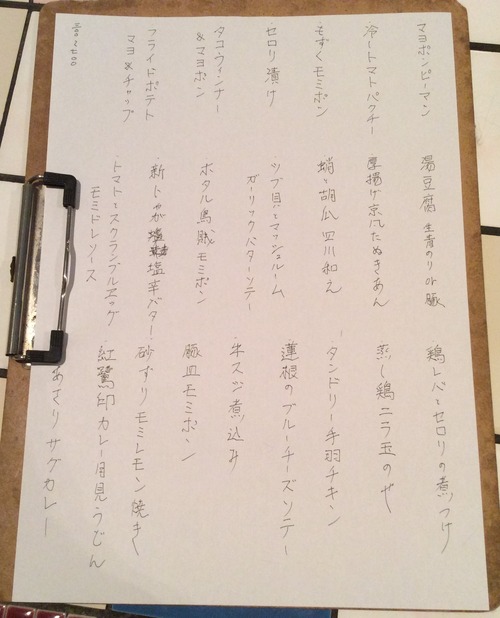 マヨポンピーマン
冷やしトマトパクチー
もずくモミポン
セロリ漬け
タコウィンナー
&マヨポン
フライドポテト
マヨ&チャップ
湯豆腐 生青のり or 豚
厚揚げ京風たぬきあん
蛸と胡瓜 四川和え
ツブ貝とマッシュルーム
ガーリックバターソテー
ホタル烏賊モミポン
新じゃが 塩辛バター
トマトとスクランブルエッグ
モミドレソース
鶏レバとセロリの煮つけ
蒸し鶏ニラ玉のせ
タンドリー手羽チキン
蓮根のブルーチーズソテー
牛スジ煮込み
豚皿モミポン
砂ずりモミレモン焼き
紅鷺印カレー月見うどん
あさりサグカレー